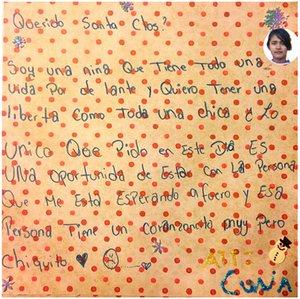 Querido Santa Clos?
Soy una nina Que Tiene Todo una
vida Por de lante y Quiero Tener una
liberta Como Toda una chica y Lo
Unico Que Pido en Este Dia ES
UNA Oportunida de Estar Con La Persona
Que Me Esta Esperando Afuero y Esa
Persona Tiene un Coranzoncito muy Pero
Chiquito